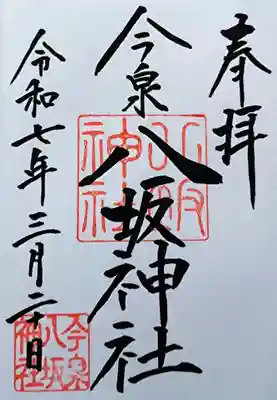 奉拝
今泉
八坂神社
八坂
神社
令和七年三月二十日
今泉
八坂
神社